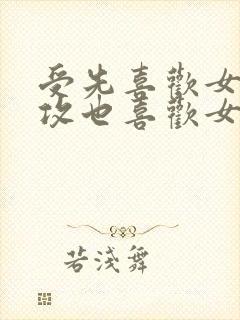 受先喜歡女
攻也喜歡女
若淺舞